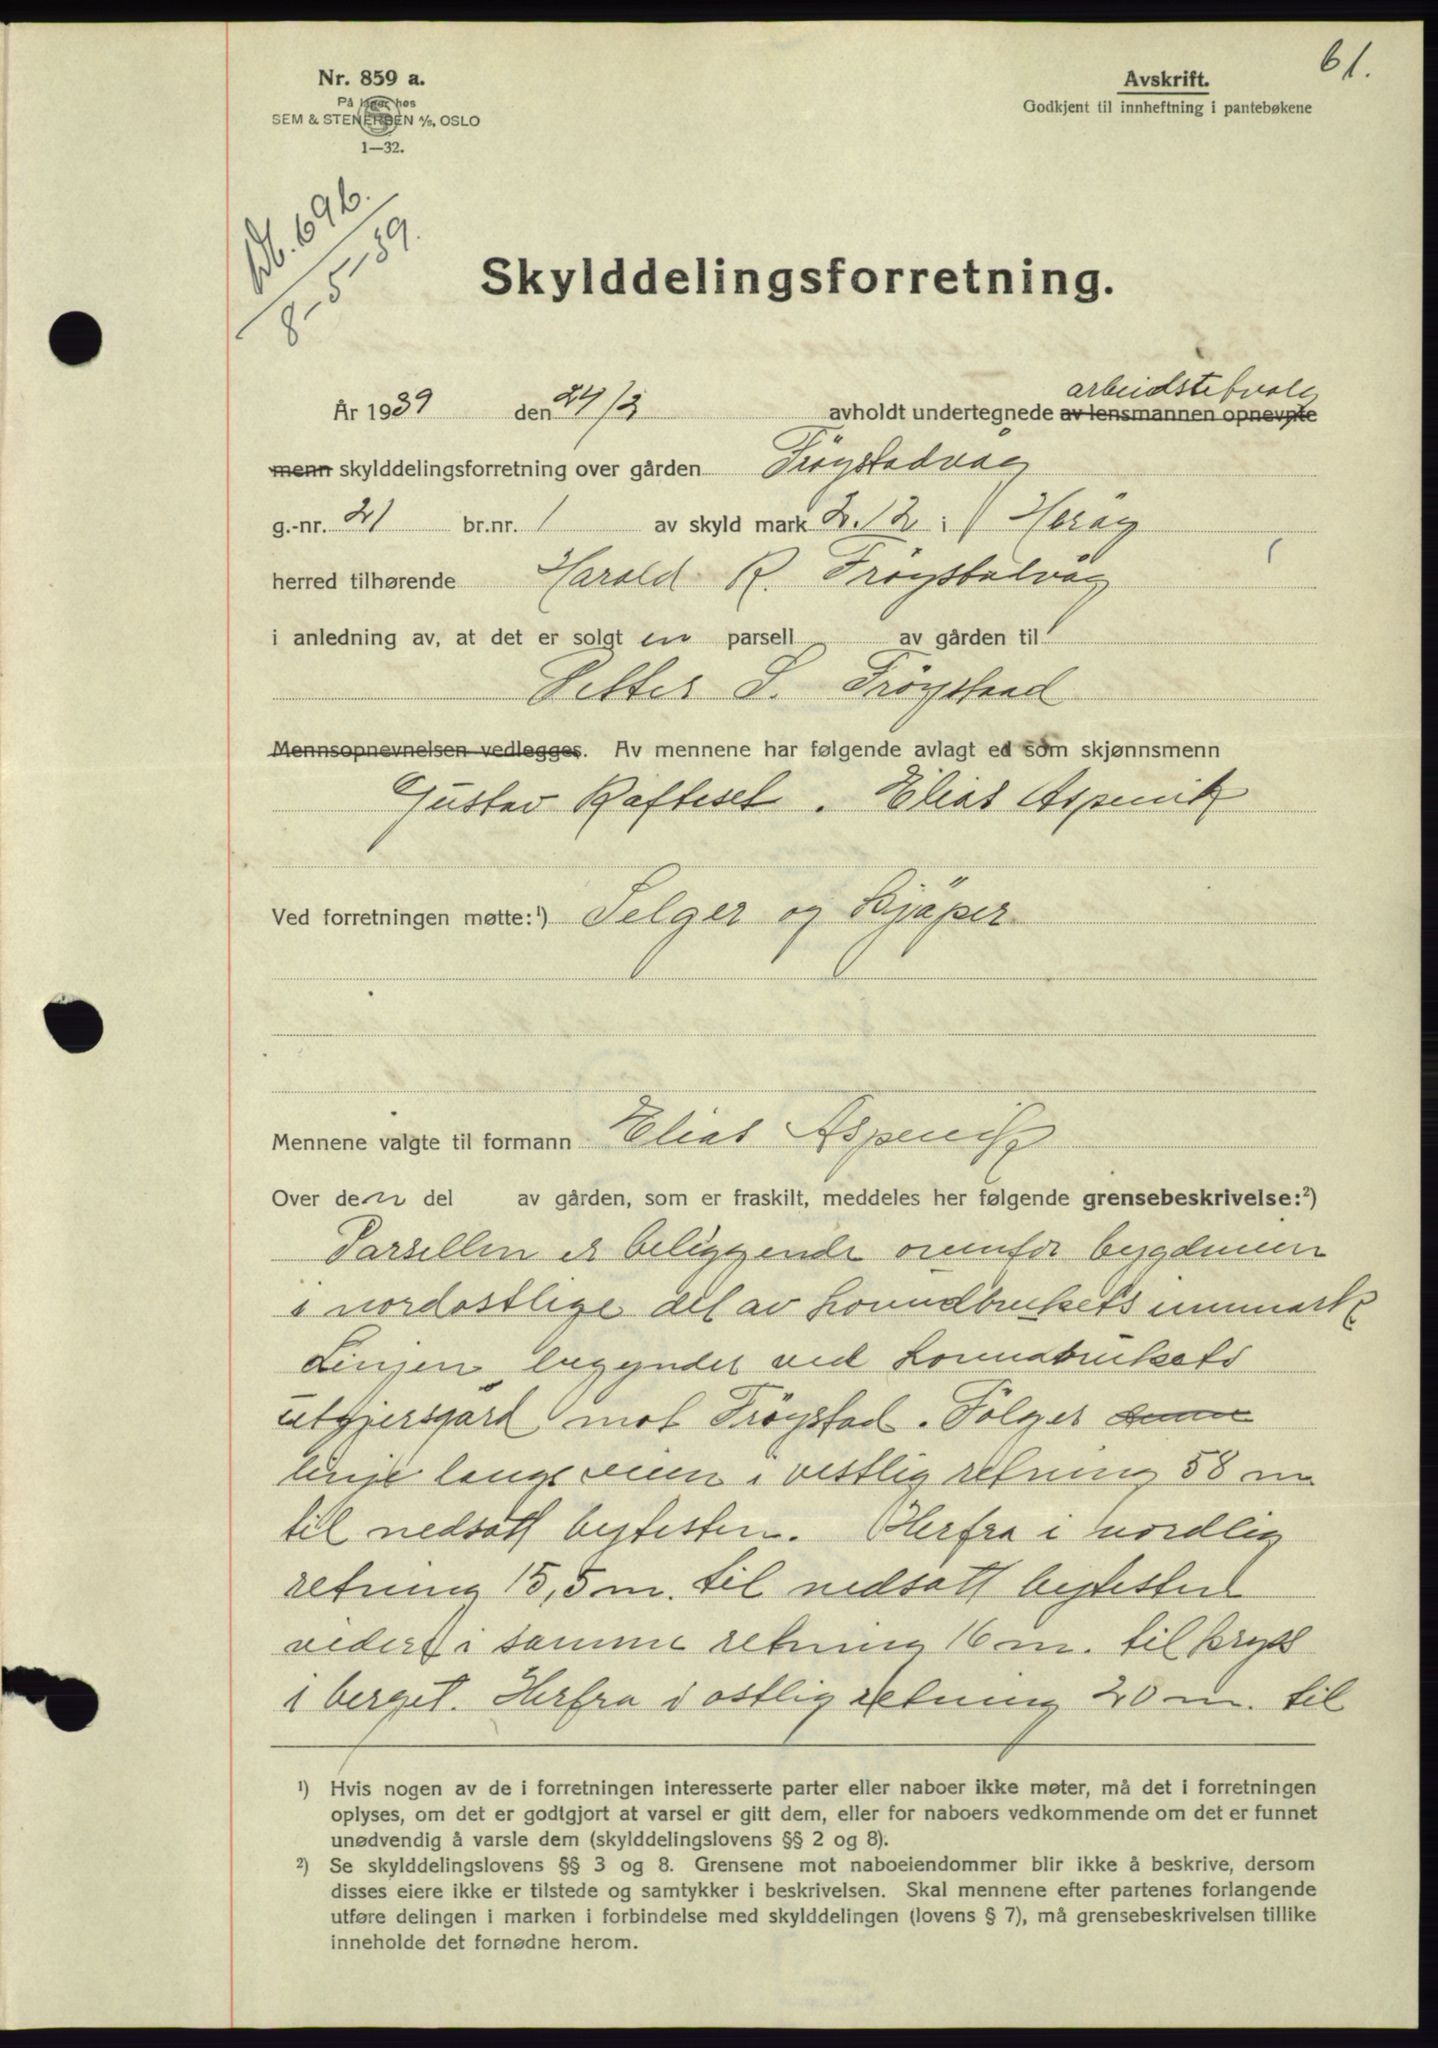 61.
Nr. 859 a.
På lager hos
SEM & STENERSEN A/S, OSLO
1—32.
Avskrift.
Godkjent til innheftning i pantebøkene
Db. 696.
8-5-39.
Skylddelingsforretning.
År 1939 den 24/3 avholdt undertegnede av lensmannen opnevnte
menn skylddelingsforretning over gården Frøystadvåg
g.-nr. 21 br.nr. 1 av skyld mark 2.12 i Herøy
herred tilhørende Harald R. Frøystadvåg
i anledning av, at det er solgt en parsell av gården til
Petter S. Frøystad
Mennsopnevnelsen vedlegges. Av mennene har følgende avlagt ed som skjønnsmenn
Gustav Rafteset. Elias Aspevik
Ved forretningen møtte:¹) Selger og kjøper
Mennene valgte til formann Elias Aspevik
Over den del av gården, som er fraskilt, meddeles her følgende grensebeskrivelse:²)
Parsellen er beliggende ovenfor bygdeveien
i nordostlige del av hovedbrukets innmark
Linjen begynder ved hovedbrukets
utgjersgård mot Frøystad. Følger denne
linje langs veien i vestlig retning 58 m
til nedsatt bytesten. Herfra i nordlig
retning 15,5 m. til nedsatt bytesten
videre i samme retning 16 m. til kryss
i berget. Herfra i ostlig retning 20 m. til
¹) Hvis nogen av de i forretningen interesserte parter eller naboer ikke møter, må det i forretningen
oplyses, om det er godtgjort at varsel er gitt dem, eller for naboers vedkommende om det er funnet
unødvendig å varsle dem (skylddelingslovens §§ 2 og 8).
²) Se skylddelingslovens §§ 3 og 8. Grensene mot naboeiendommer blir ikke å beskrive, dersom
disses eiere ikke er tilstede og samtykker i beskrivelsen. Skal mennene efter partenes forlangende
utføre delingen i marken i forbindelse med skylddelingen (lovens § 7), må grensebeskrivelsen tillike
inneholde det fornødne herom.